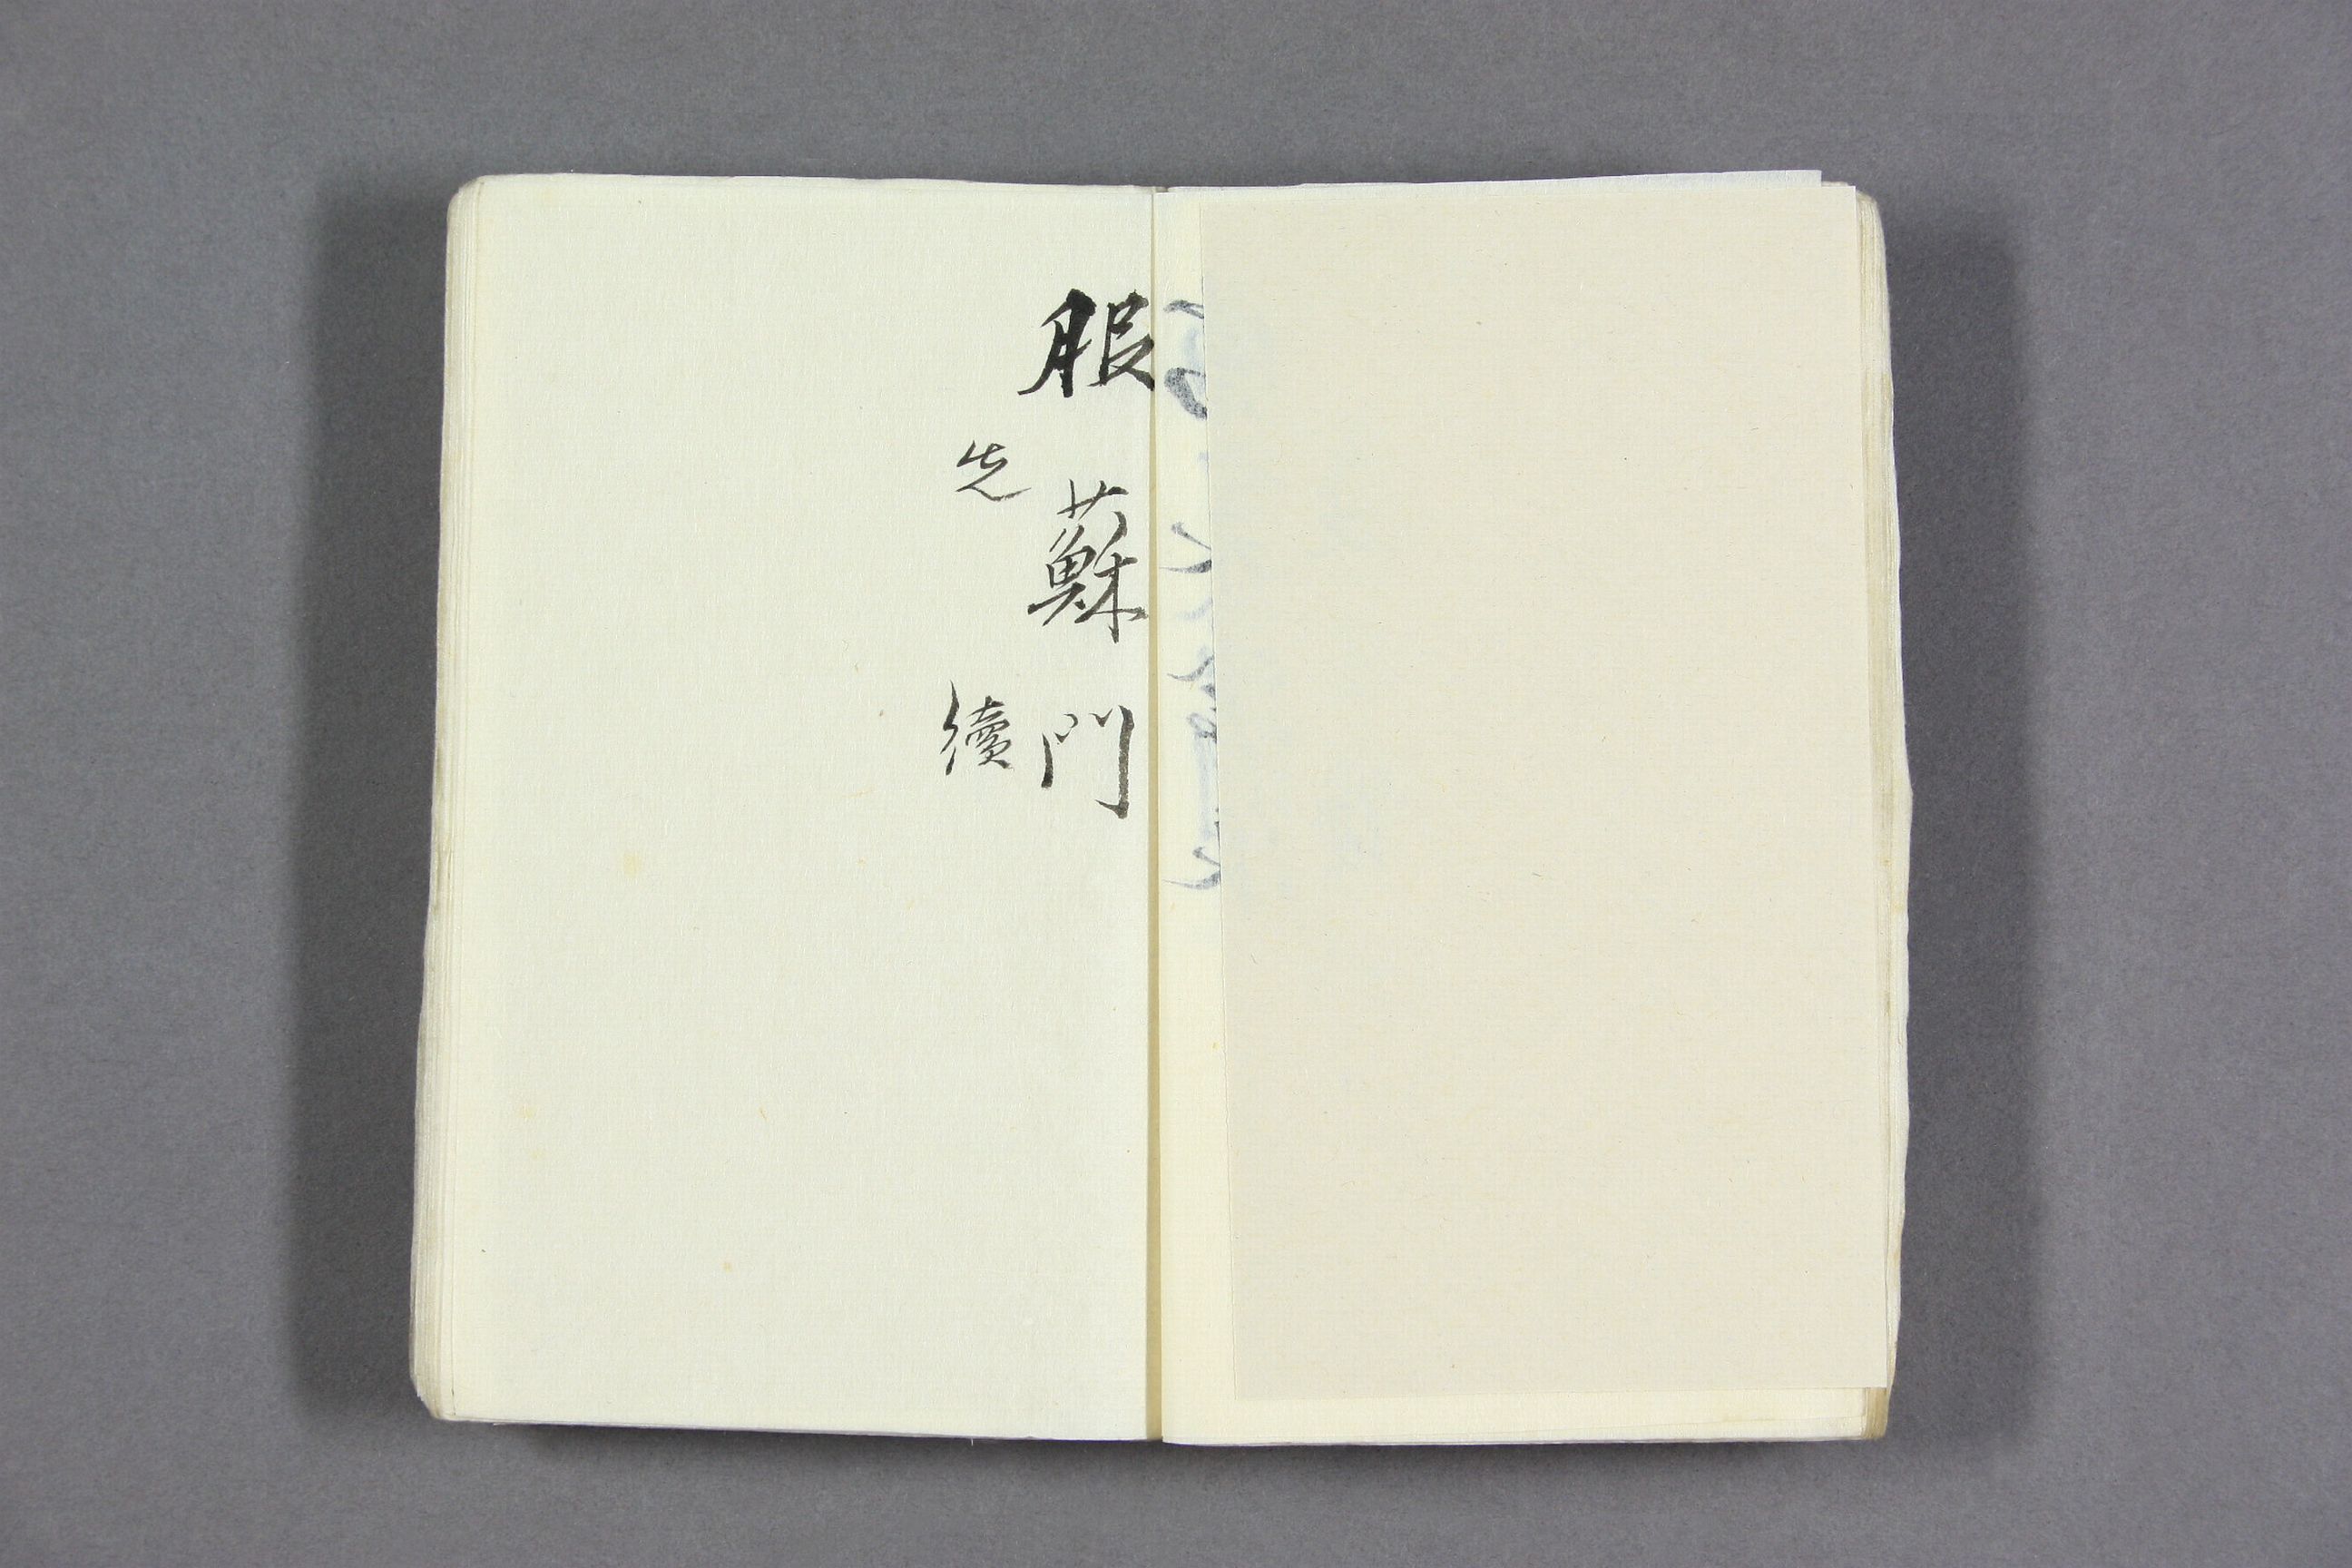 服
蘇
門
先
續